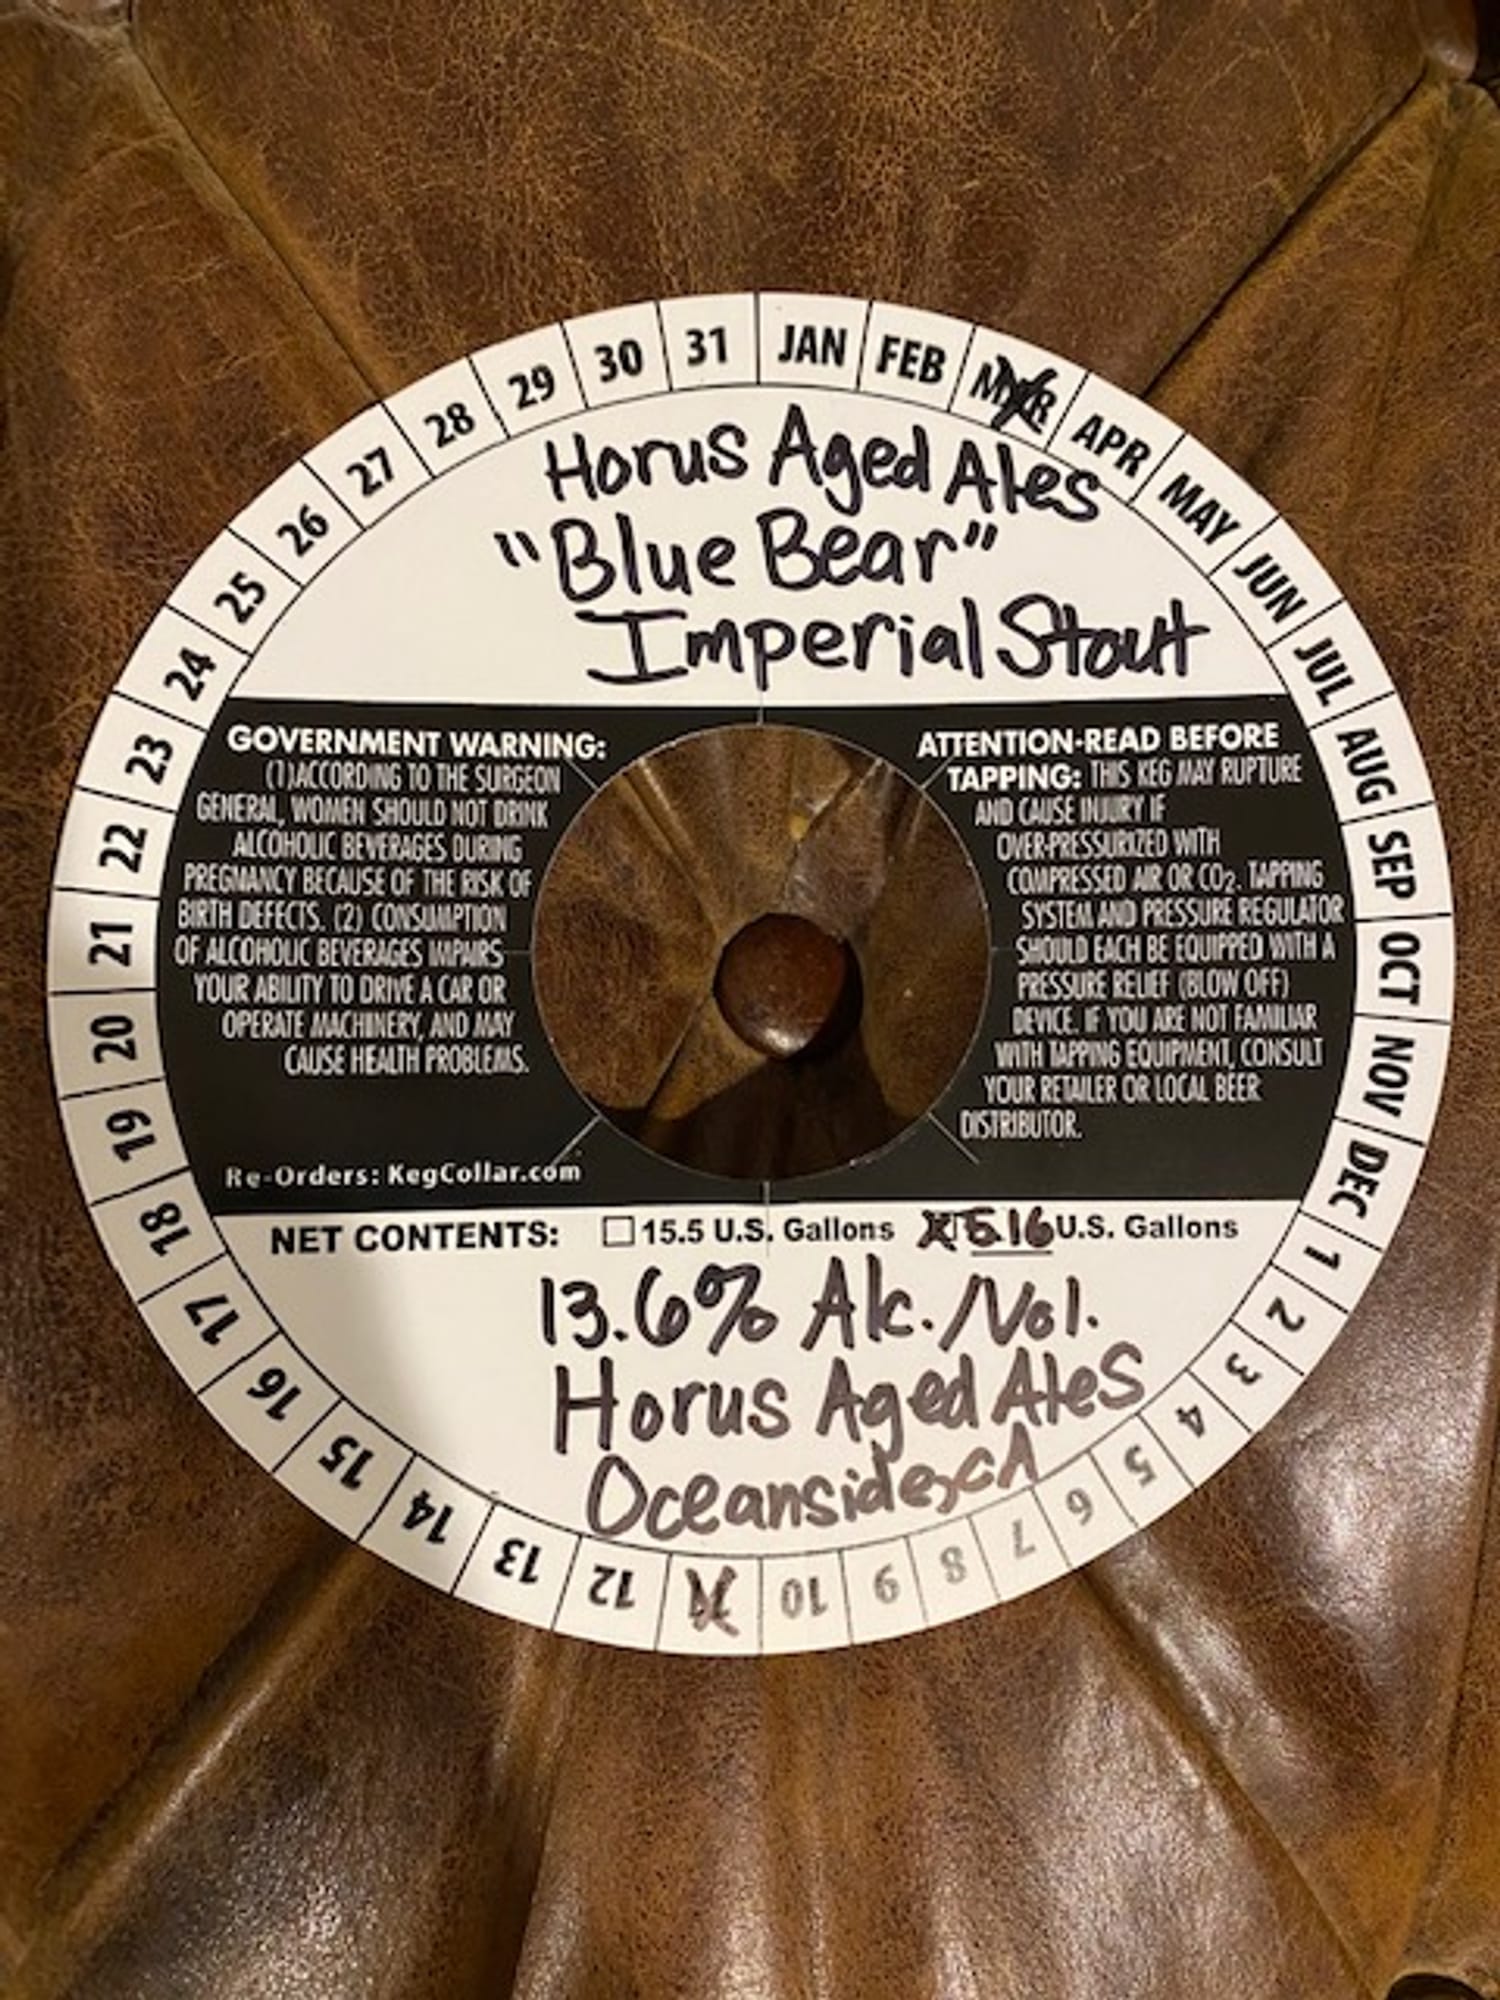 JAN FEB MAR APR MAY JUN JUL AUG SEP OCT NOV DEC 1 2 3 4 5 6 7 8 9 10 11 12 13 14 15 16 17 18 19 20 21 22 23 24 25 26 27 28 29 30 31
Horus Aged Ales
"Blue Bear"
Imperial Stout
GOVERNMENT WARNING:
(1)ACCORDING TO THE SURGEON
GENERAL, WOMEN SHOULD NOT DRINK
ALCOHOLIC BEVERAGES DURING
PREGNANCY BECAUSE OF THE RISK OF
BIRTH DEFECTS. (2) CONSUMPTION
OF ALCOHOLIC BEVERAGES IMPAIRS
YOUR ABILITY TO DRIVE A CAR OR
OPERATE MACHINERY, AND MAY
CAUSE HEALTH PROBLEMS.
Re-Orders: KegCollar.com
ATTENTION-READ BEFORE
TAPPING: THIS KEG MAY RUPTURE
AND CAUSE INJURY IF
OVER-PRESSURIZED WITH
COMPRESSED AIR OR CO2. TAPPING
SYSTEM AND PRESSURE REGULATOR
SHOULD EACH BE EQUIPPED WITH A
PRESSURE RELIEF (BLOW OFF)
DEVICE. IF YOU ARE NOT FAMILIAR
WITH TAPPING EQUIPMENT, CONSULT
YOUR RETAILER OR LOCAL BEER
DISTRIBUTOR.
NET CONTENTS: 15.5 U.S. Gallons X 5.16 U.S. Gallons
13.6% Alc./Vol.
Horus Aged Ales
Oceanside, CA